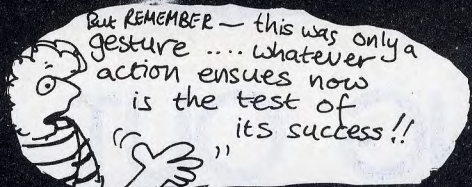 But REMEMBER — this was only a
gesture .... whatever
action ensues now
is the test of
its success!!